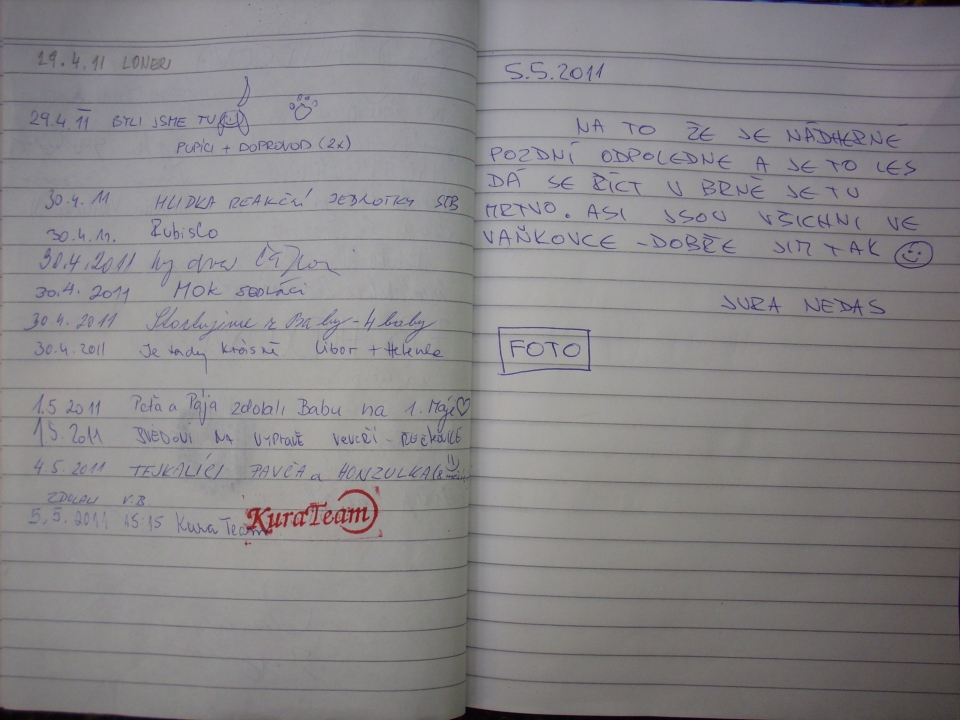 29.4.11 LONER
29.4.11 BYLI JSME TU
PUPÍCI + DOPROVOD (2x)
30.4.11 HLÍDKA REAKČNÍ JEDNOTKY STB
30.4.11. Rubislo
30.4.2011 my dva
30.4.2011 MOK SEDLÁCI
30.4.2011 Slavkujeme z Baby - 4 baby
30.4.2011 Je tady krásně Libor + Helenka
1.5 2011 Peťa a Pája zdolali Babu na 1. Máje ♡
1 5. 2011 ŠVÉDOVÉ NA VÝPRAVĚ VEVEŘÍ -
4.5.2011 PAVČA a HONZULKA
5.5.2011 15:15 Kura Team
KuraTeam
5.5.2011
NA TO ŽE JE NÁDHERNÉ
POZDNÍ ODPOLEDNE A JE TO LES
DÁ SE ŘÍCT V BRNĚ JE TU
MRTVO. ASI JSOU VŠICHNI VE
VAŇKOVCE - DOBŘE JIM TAK
JURA NEDAS
FOTO